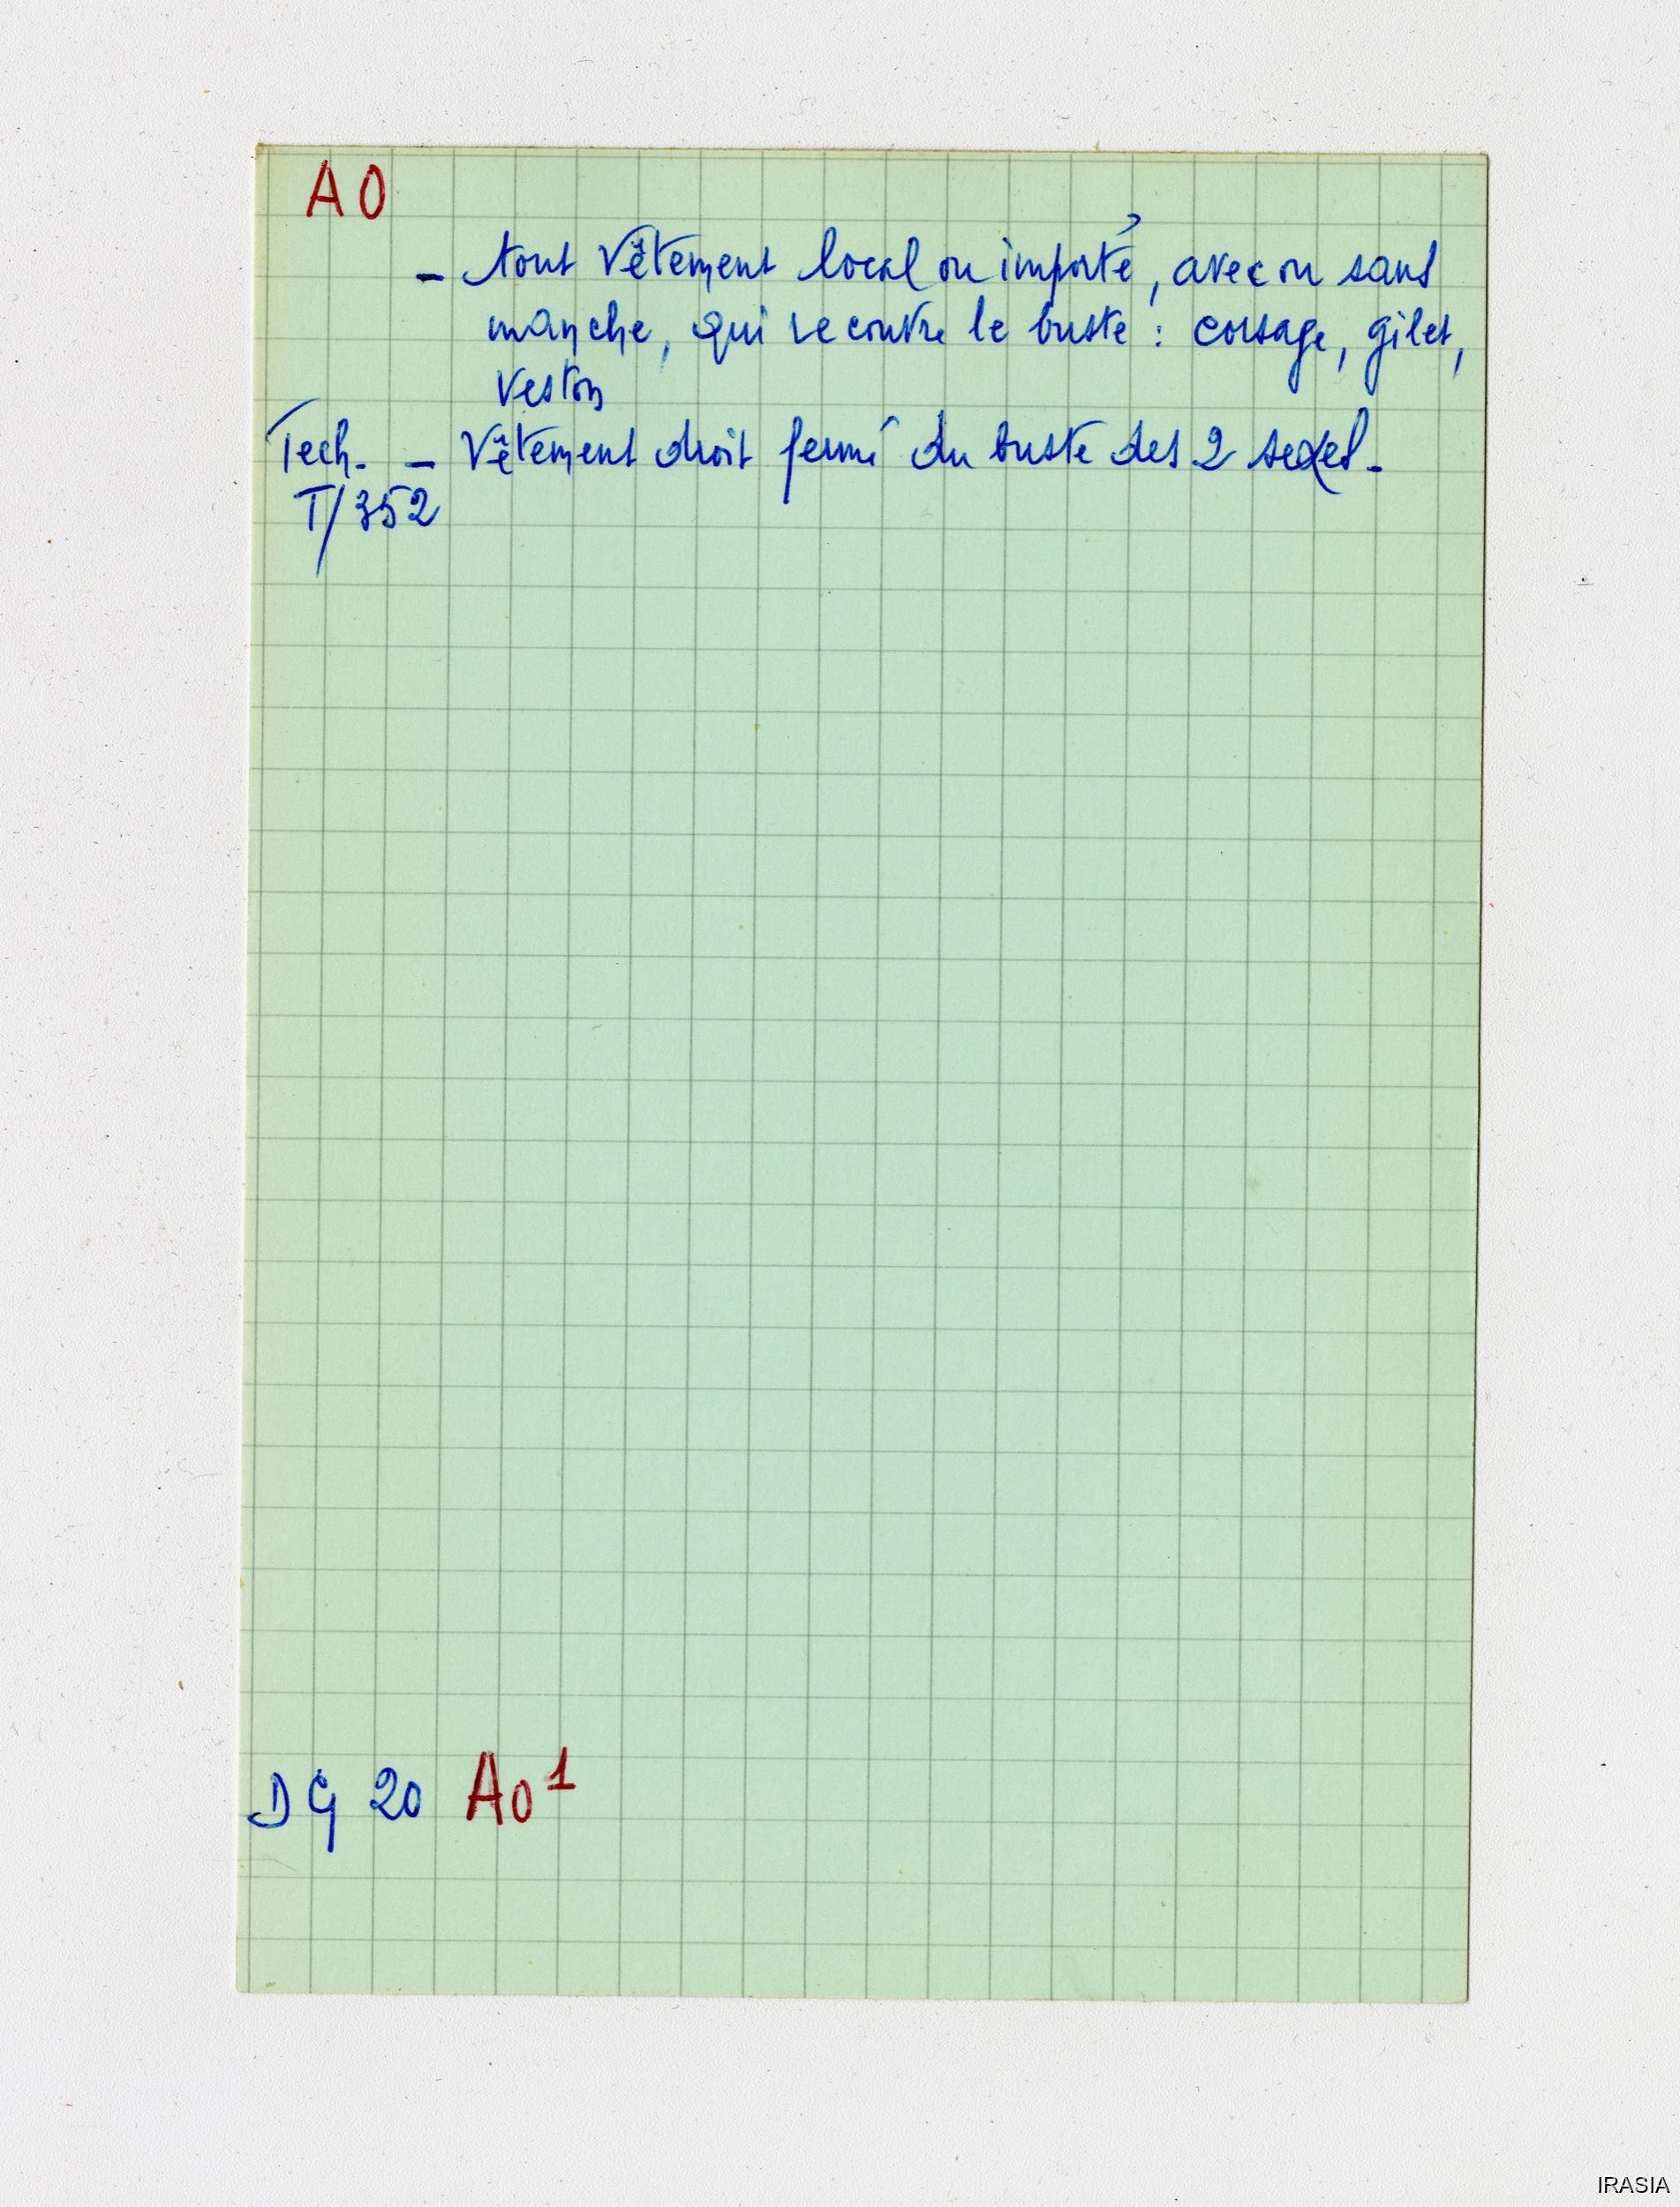 A O
- tout vêtement local ou importé, avec ou sans
manche, qui recouvre le buste : corsage, gilet,
veston
Tech. - Vêtement droit fermé du buste des 2 sexes.
T/352
DG 20 Ao¹
IRASIA